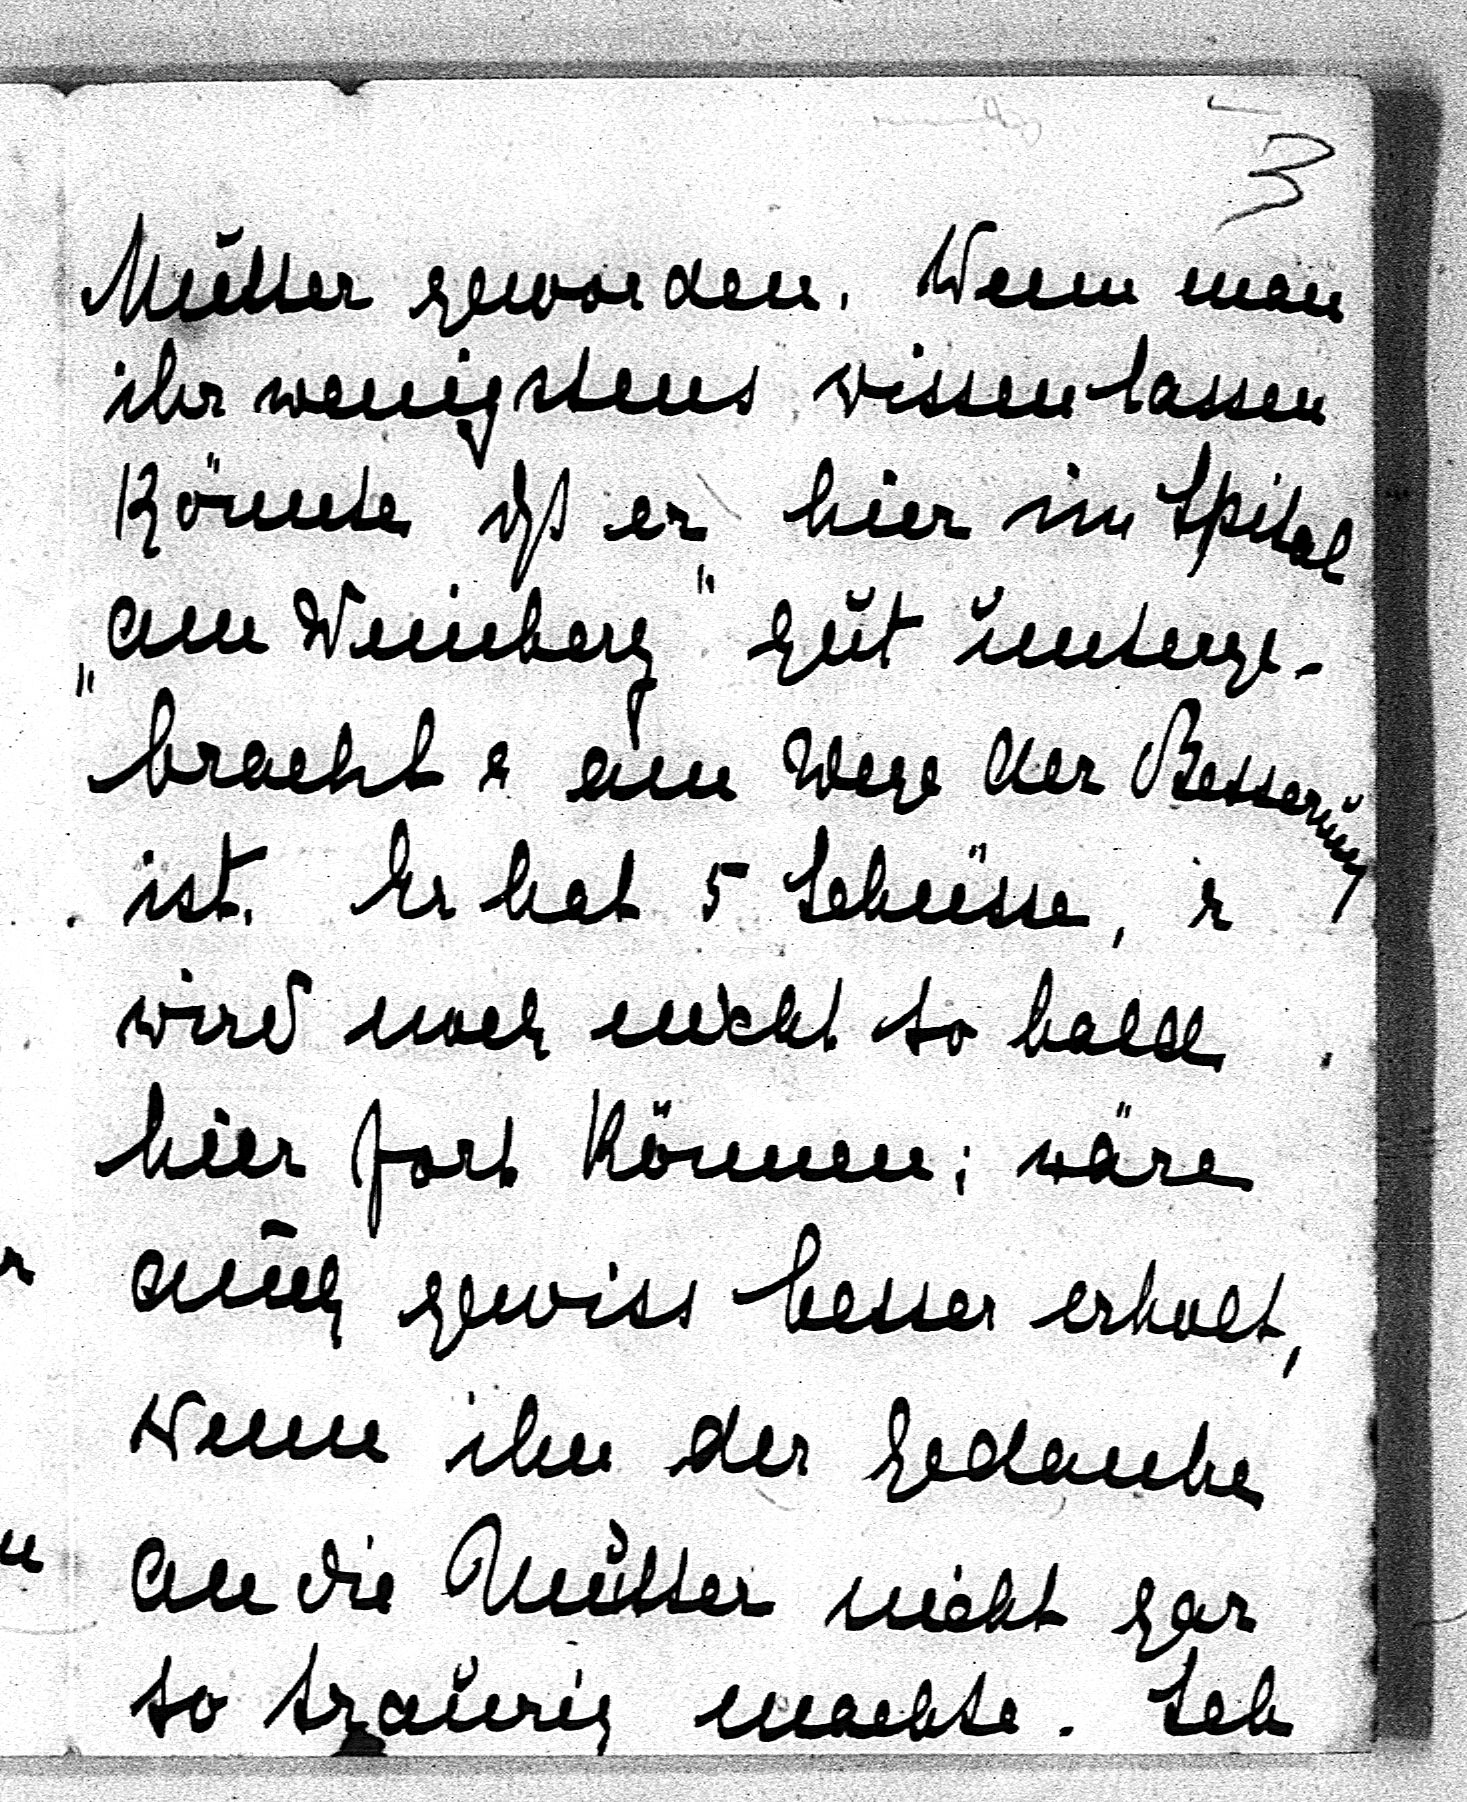 3
Mutter geworden. Wenn man
ihr wenigstens wissen lassen
könnte dß er hier im Spital
"am Weinberg" gut unterge-
bracht & am Wege der Besserung
ist. Er hat 5 Schüsse, &
wird noch nicht so bald
hier fort können; wäre
auch gewiss besser erholt,
wenn ihn der Gedanke
an die Mutter nicht gar
so traurig machte. Ich